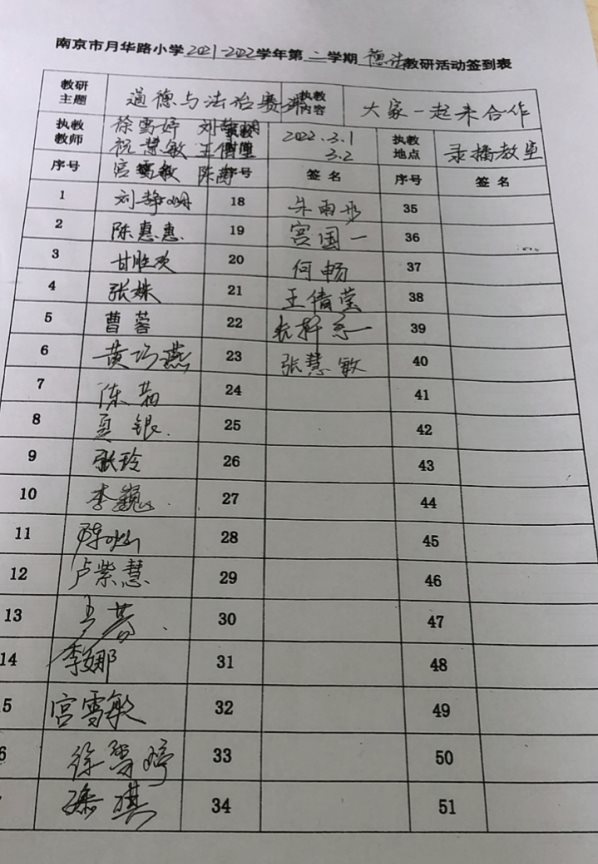 南京市月华路小学2021-2022学年第二学期德法教研活动签到表
教研主题 道德与法治赛课 执教内容 大家一起来合作
执教教师 徐雪婷 刘静娴 2022.3.1 执教地点 录播教室
祝慧敏 王倩莹 3.2
宫雪敏 陈茜
序号 序号 签名 序号 签名
1 刘静娴 18 朱雨彤 35
2 陈惠惠 19 宫国一 36
3 甘胜欢 20 何畅 37
4 张姝 21 王倩莹 38
5 曹蓉 22 39
6 黄巧燕 23 张慧敏 40
7 陈茜 24 41
8 夏银 25 42
9 张玲 26 43
10 李巍 27 44
11 陈灿 28 45
12 卢紫慧 29 46
13 30 47
14 李娜 31 48
5 宫雪敏 32 49
6 徐雪婷 33 50
孙琪 34 51